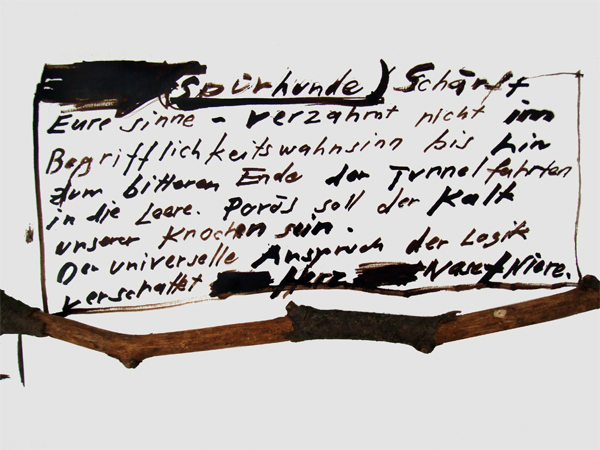 (Spürhunde) Schärft
Eure sinne - verzahnt nicht im
Begrifflichkeitswahnsinn bis hin
zum bitteren Ende der Tunnelfahrten
in die Leere. Porös soll der Kalk
unserer Knochen sein.
Der universelle Anspruch der Logik
verschaltet Herz Nase + Niere.